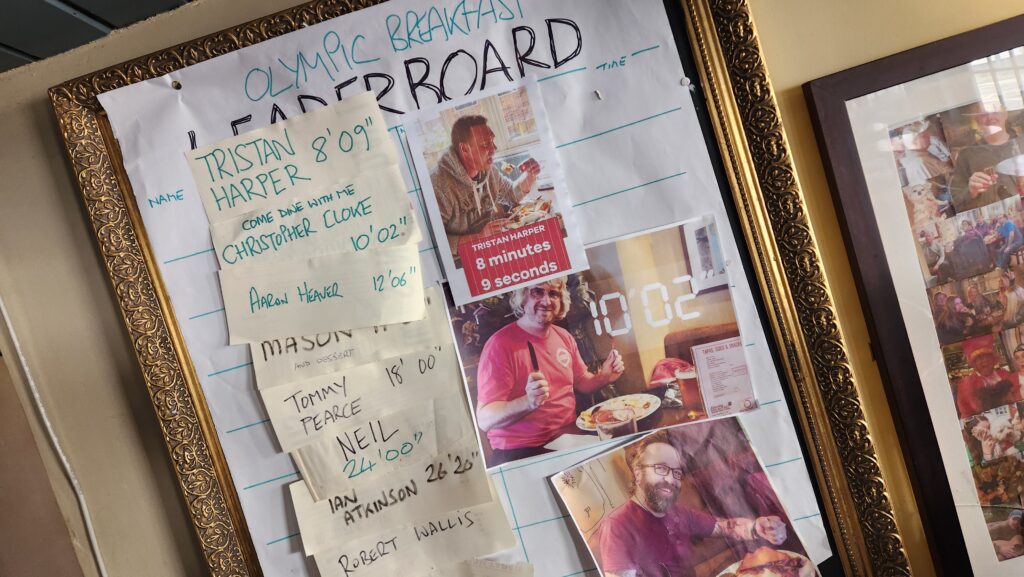 OLYMPIC BREAKFAST
LEADERBOARD
NAME
TIME
TRISTAN 8'09"
HARPER
COME DINE WITH ME
CHRISTOPHER CLOKE
10'02"
AARON HEAVER 12'06"
MASON
AND DESSERT
TOMMY 18'00"
PEARCE
NEIL
24'00"
IAN 26'20"
ATKINSON
ROBERT WALLIS
TRISTAN HARPER
8 minutes
9 seconds
10'02